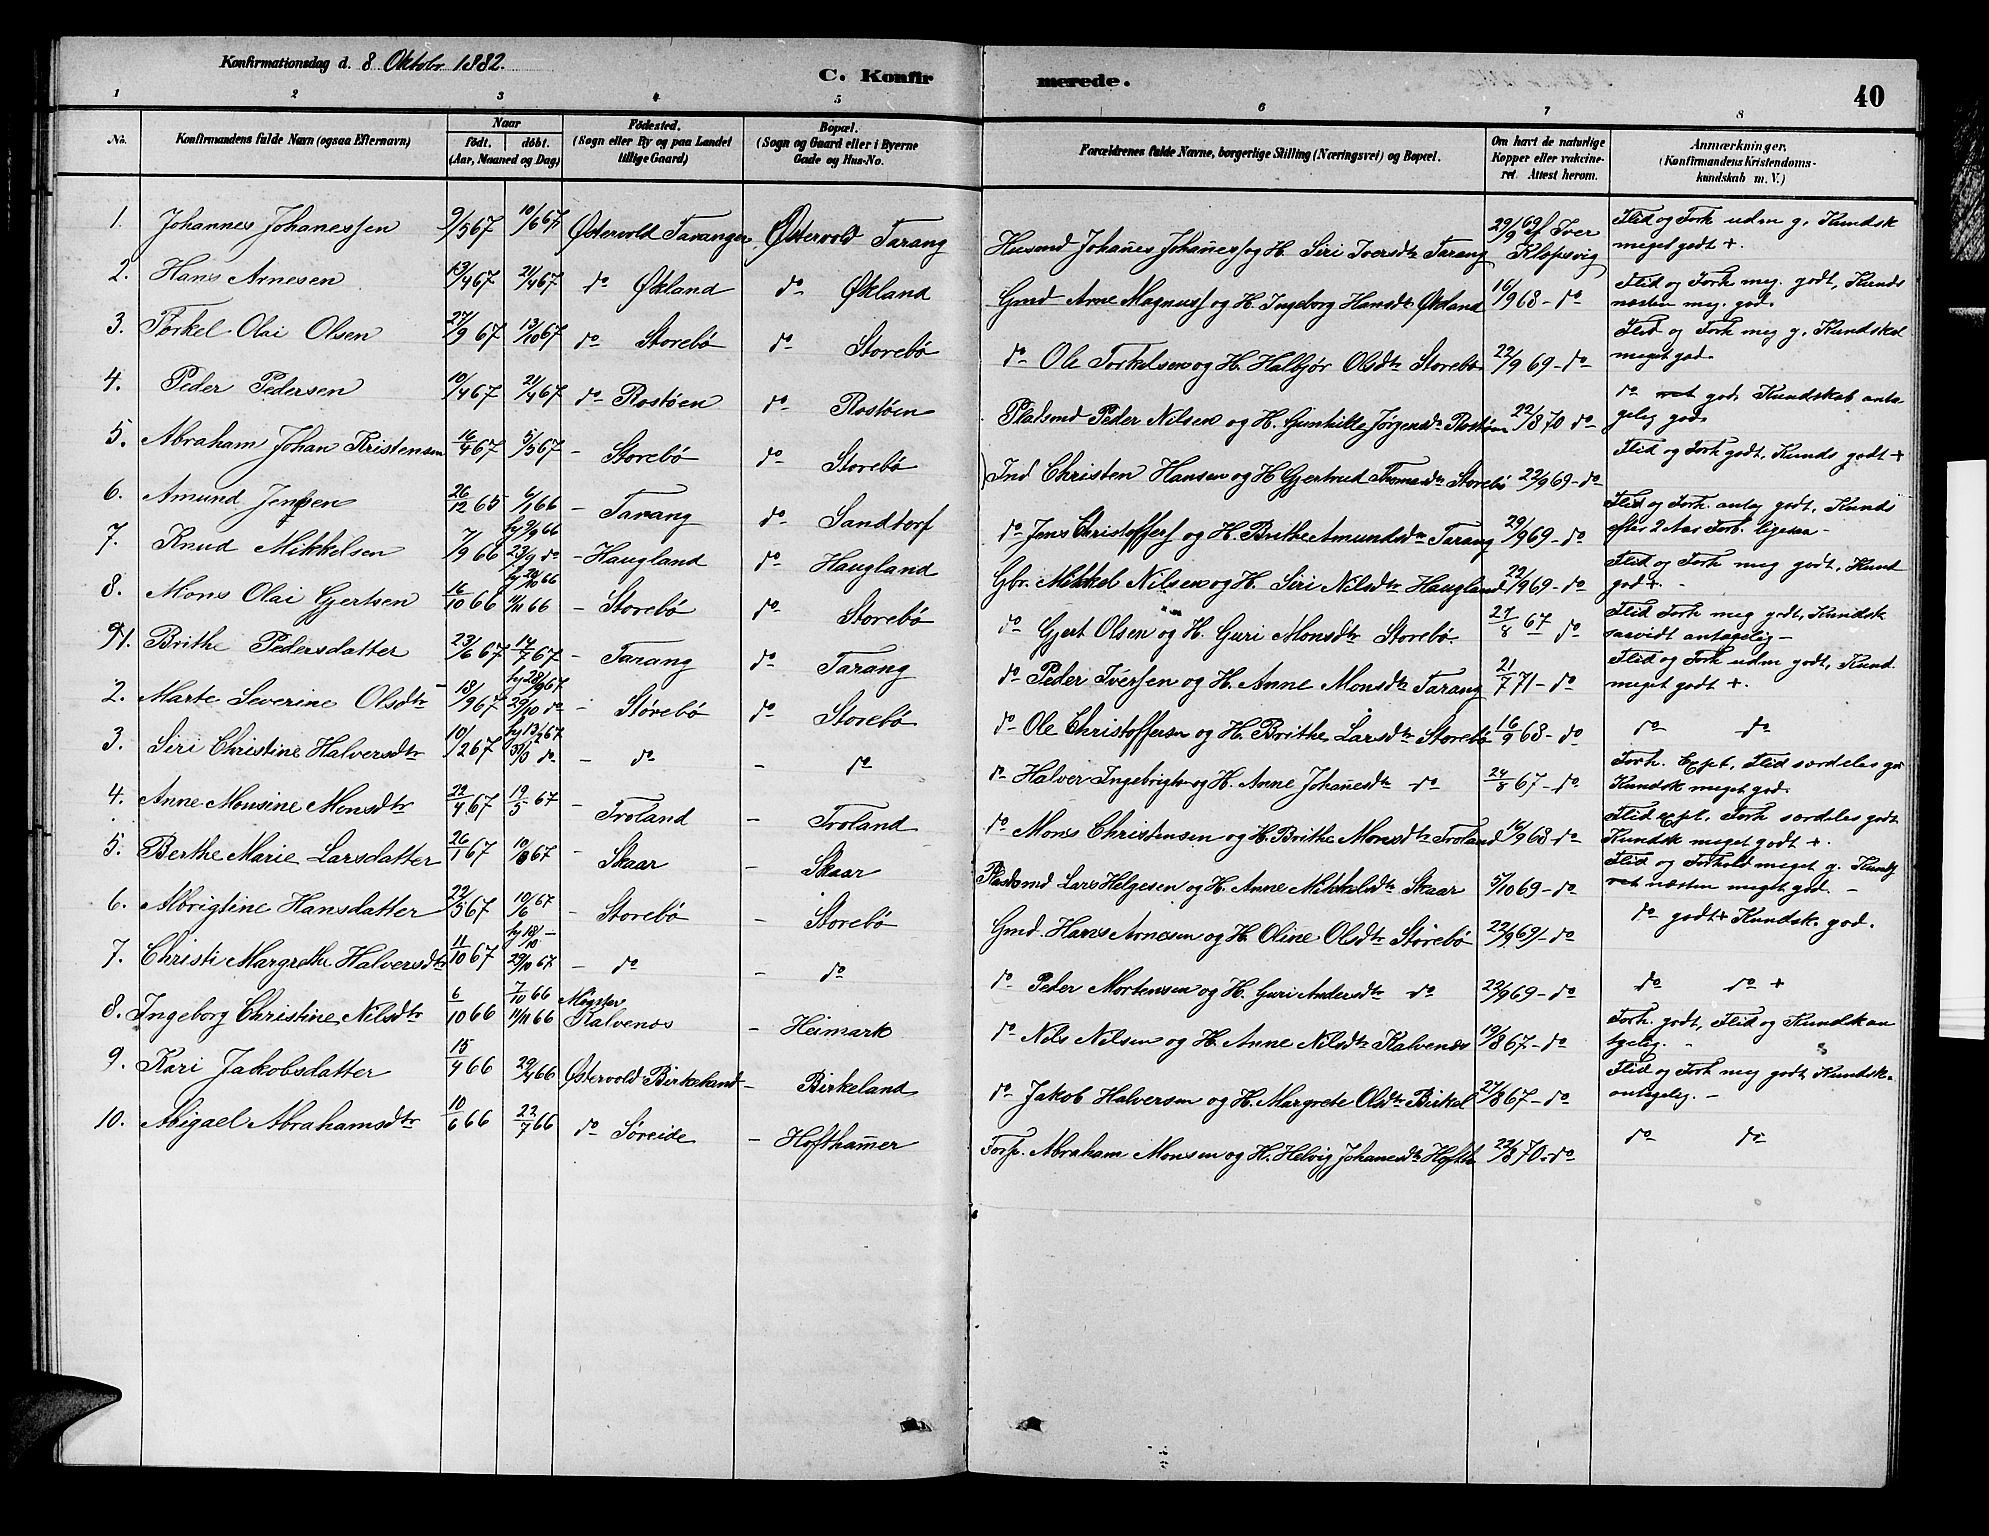 Konfirmationsdag d. 8 Oktobr 1882.
C. Konfirmerede.
40
1 2 3 4 5 6 7 8
No. Konfirmandens fulde Navn (ogsaa Efternavn) Naar födt. döbt. (Aar, Maaned og Dag) Födested. (Sogn eller By og paa Landet tillige Gaard) Bopæl. (Sogn og Gaard eller i Byerne Gade og Hus-No. Forældrenes fulde Navne, borgerlige Stilling (Næringsvei) og Bopæl. Om havt de naturlige Kopper eller vakcineret. Attest herom. Anmærkninger. (Konfirmandens Kristendomskundskab m. V.)
1. Johannes Johanessen 9/5 67 10/6 67 Østervold Taranger Østervold Tarang Husmd Johañes Johañess og H. Siri Iversdtr Tarang 29/9 69 af Iver Klepsvig Flid og Forh uden g. Kundsk meget godt +.
2. Hans Arnesen 13/4 67 21/4 67 do Økland do Økland Gmd Arne Magnuss og H. Ingeborg Hansdtr Økland 16/9 68 - do Flid og Forh meg. godt, Kunds næsten meg. god.
3. Torkel Olai Olsen 27/9 67 13/10 67 do Storebø do Storebø do Ole Torkelsen og H. Halbjør Olsdtr Storebø 22/9 69 - do Flid og Forh meg g. Kundskab meget god.
4. Peder Pedersen 10/4 67 21/4 67 do Rostøen do Rostøen Pladsmd Peder Nilsen og H. Gunhilde Jørgensdtr Rostøen 22/8 70 do do ret god Kundskab antagelig god.
5. Abraham Johan Kristensen 16/4 67 5/5 67 - Storebø do Storebø Ind Christen Hansen og H Gjertrud Thomasdtr Storebø 22/9 69 - do Flid og Forh godt, Kunds godt +
6. Amund Jenssen 26/12 65 6/1 66 - Tarang do Sandtorf do Jens Christoffers og H. Brithe Amundsdtr Tarang 29/9 69 - do Flid og Forh. antag godt, Kunds efter 2 Aars Forb. ligesaa -
7. Knud Mikkelsen 7/9 66 hj 9/9 66 23/9 do - Haugland do Haugland Gbr. Mikkel Nilsen og H. Siri Nilsdtr Haugland 22/9 69 - do Flid og Forh meg godt, Kund god +. -
8. Mons Olai Gjertsen 16/10 66 hj 21/10 66 11/11 66 - Storebø do Storebø do Gjert Olsen og H. Guri Monsdtr Storebø. 27/8 67 do Flid Forh meg godt, Kundsk saavidt antagelig -
1. Brithe Pedersdatter 23/6 67 14/7 67 - Tarang do Tarang do Peder Iversen og H. Anne Monsdtr Tarang 21/7 71 - do Flid og Forh uden godt, Kund. meget godt +.
2. Marte Severine Olsdtr 18/9 67 hj 28/9 67 29/10 do - Størebø do Storebø do Ole Christoffersn og H. Brithe Larsdtr Storebø 16/9 68 - do do do
3. Siri Christine Halversdtr 10/2 67 hj 13/2 67 31/3 do - do - do do Halver Ingebrigts og H. Anne Johañesdtr do 24/8 67 - do Forh. Expl. Flid særdeles god Kundsk meget god.
4. Anne Monsine Monsdtr 22/4 67 19/5 67 - Troland - Troland do Mons Christensen og H. Brithe Monsdtr Troland 16/9 68 - do Flid expl. Forh særdeles godt Kundsk meget godt +.
5. Berthe Marie Larsdatter 26/1 67 10/3 67 - Skaar - Skaar Pladsmd Lars Helgesen og H. Anne Mikkelsdtr Skaar 5/10 69 - do Flid og Forhold meget g. Kundsk ret næsten meget god. -
6. Albrigtine Hansdatter 22/5 67 10/6 67 - Storebø - Storebø Gmd. Hans Arnesen og H. Oline Olsdtr Størebø 22/9 69 - do do godt + Kundsk. god.
7. Christi Margrethe Halversdtr 11/10 67 hj 18/10 - 29/10 67 - do - do do Peder Mortensen og H. Guri Andersdtr do 22/9 69 - do do do +
8. Ingeborg Christine Nilsdtr 6/10 66 7/10 66 11/11 66 Møgster Kalvenes - Heimark do Nils Nilsen og H. Anne Nilsdtr Kalvenes 19/8 67 - do Forh. godt, Flid og Kundsk antgelig. -
9. Kari Jakobsdatter 15/4 66 29/4 66 Østervold Birkeland - Birkeland do Jakob Halversen og H. Margrete Olsdtr Birkel 27/8 67 - do Flid og Forh meg godt Kundsk. antagelig. -
10. Abigael Abrahamsdtr 10/6 66 22/7 66 do Søreide - Hoftham̃er Forp. Abraham Monsen og H. Helvig Johanesdtr Hofth 22/8 70. do do do